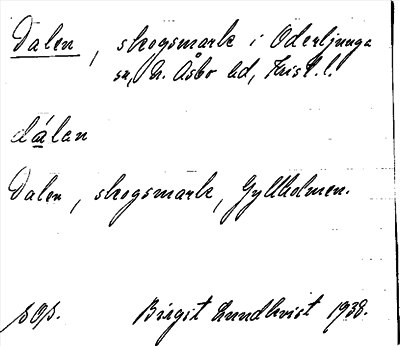 Dalen, skogsmark i Oderljunga
sn, N. Åsbo hd, Krist. l.
dálan
Dalen, skogsmark, Gyllholmen.
sOp. Birgit Lundkvist 1938.